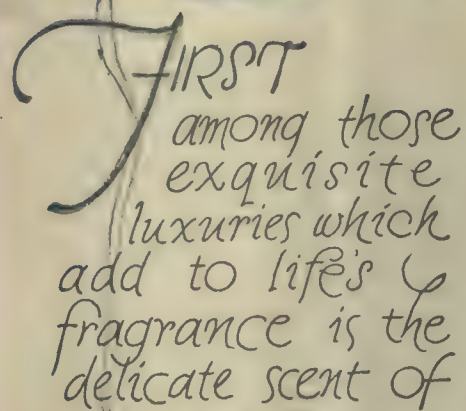 FIRST
among those
exquisite
luxuries which
add to life's
fragrance is the
delicate scent of